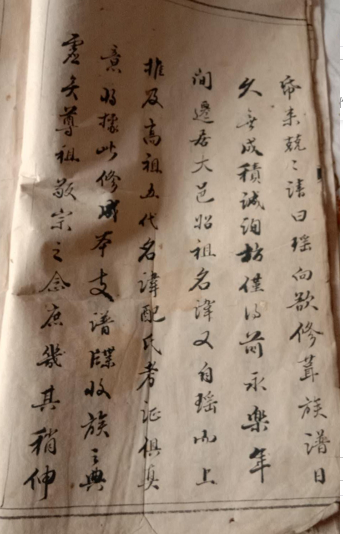 帋来兢〻語曰瑶向欲修葺族譜日
久無成積誠詢訪僅得前永樂年
間遷居大邑始祖名諱又自瑶以上
推及高祖五代名諱配氏考证俱真
意将據此修成本支譜牒收族之典
虚矣尊祖敬宗之念庶幾其稍伸